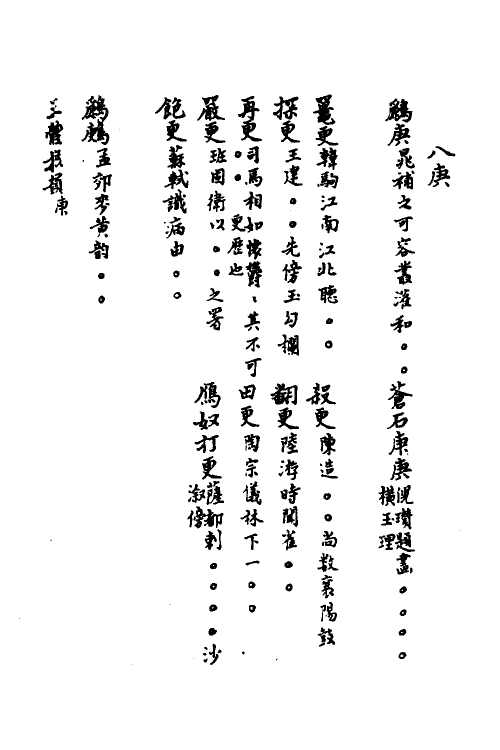 八庚
鶊庚晁補之可容叢灌和。。蒼石庚庚倪瓚題畫。。。。橫玉理
鼍更韓駒江南江北聽。。殺更陳造。。尚数襄陽鼓
探更王建。。先傍玉勾欄翻更陸游時聞雀。。
再更司馬相如懷、其不可。。更歷也田更陶宗儀林下一。。
嚴更班固衛以。。之署鴈奴打更薩都剌。。。。沙溆傍
飽更蘇軾識病由。。
鶊孟郊麥黃韵。。